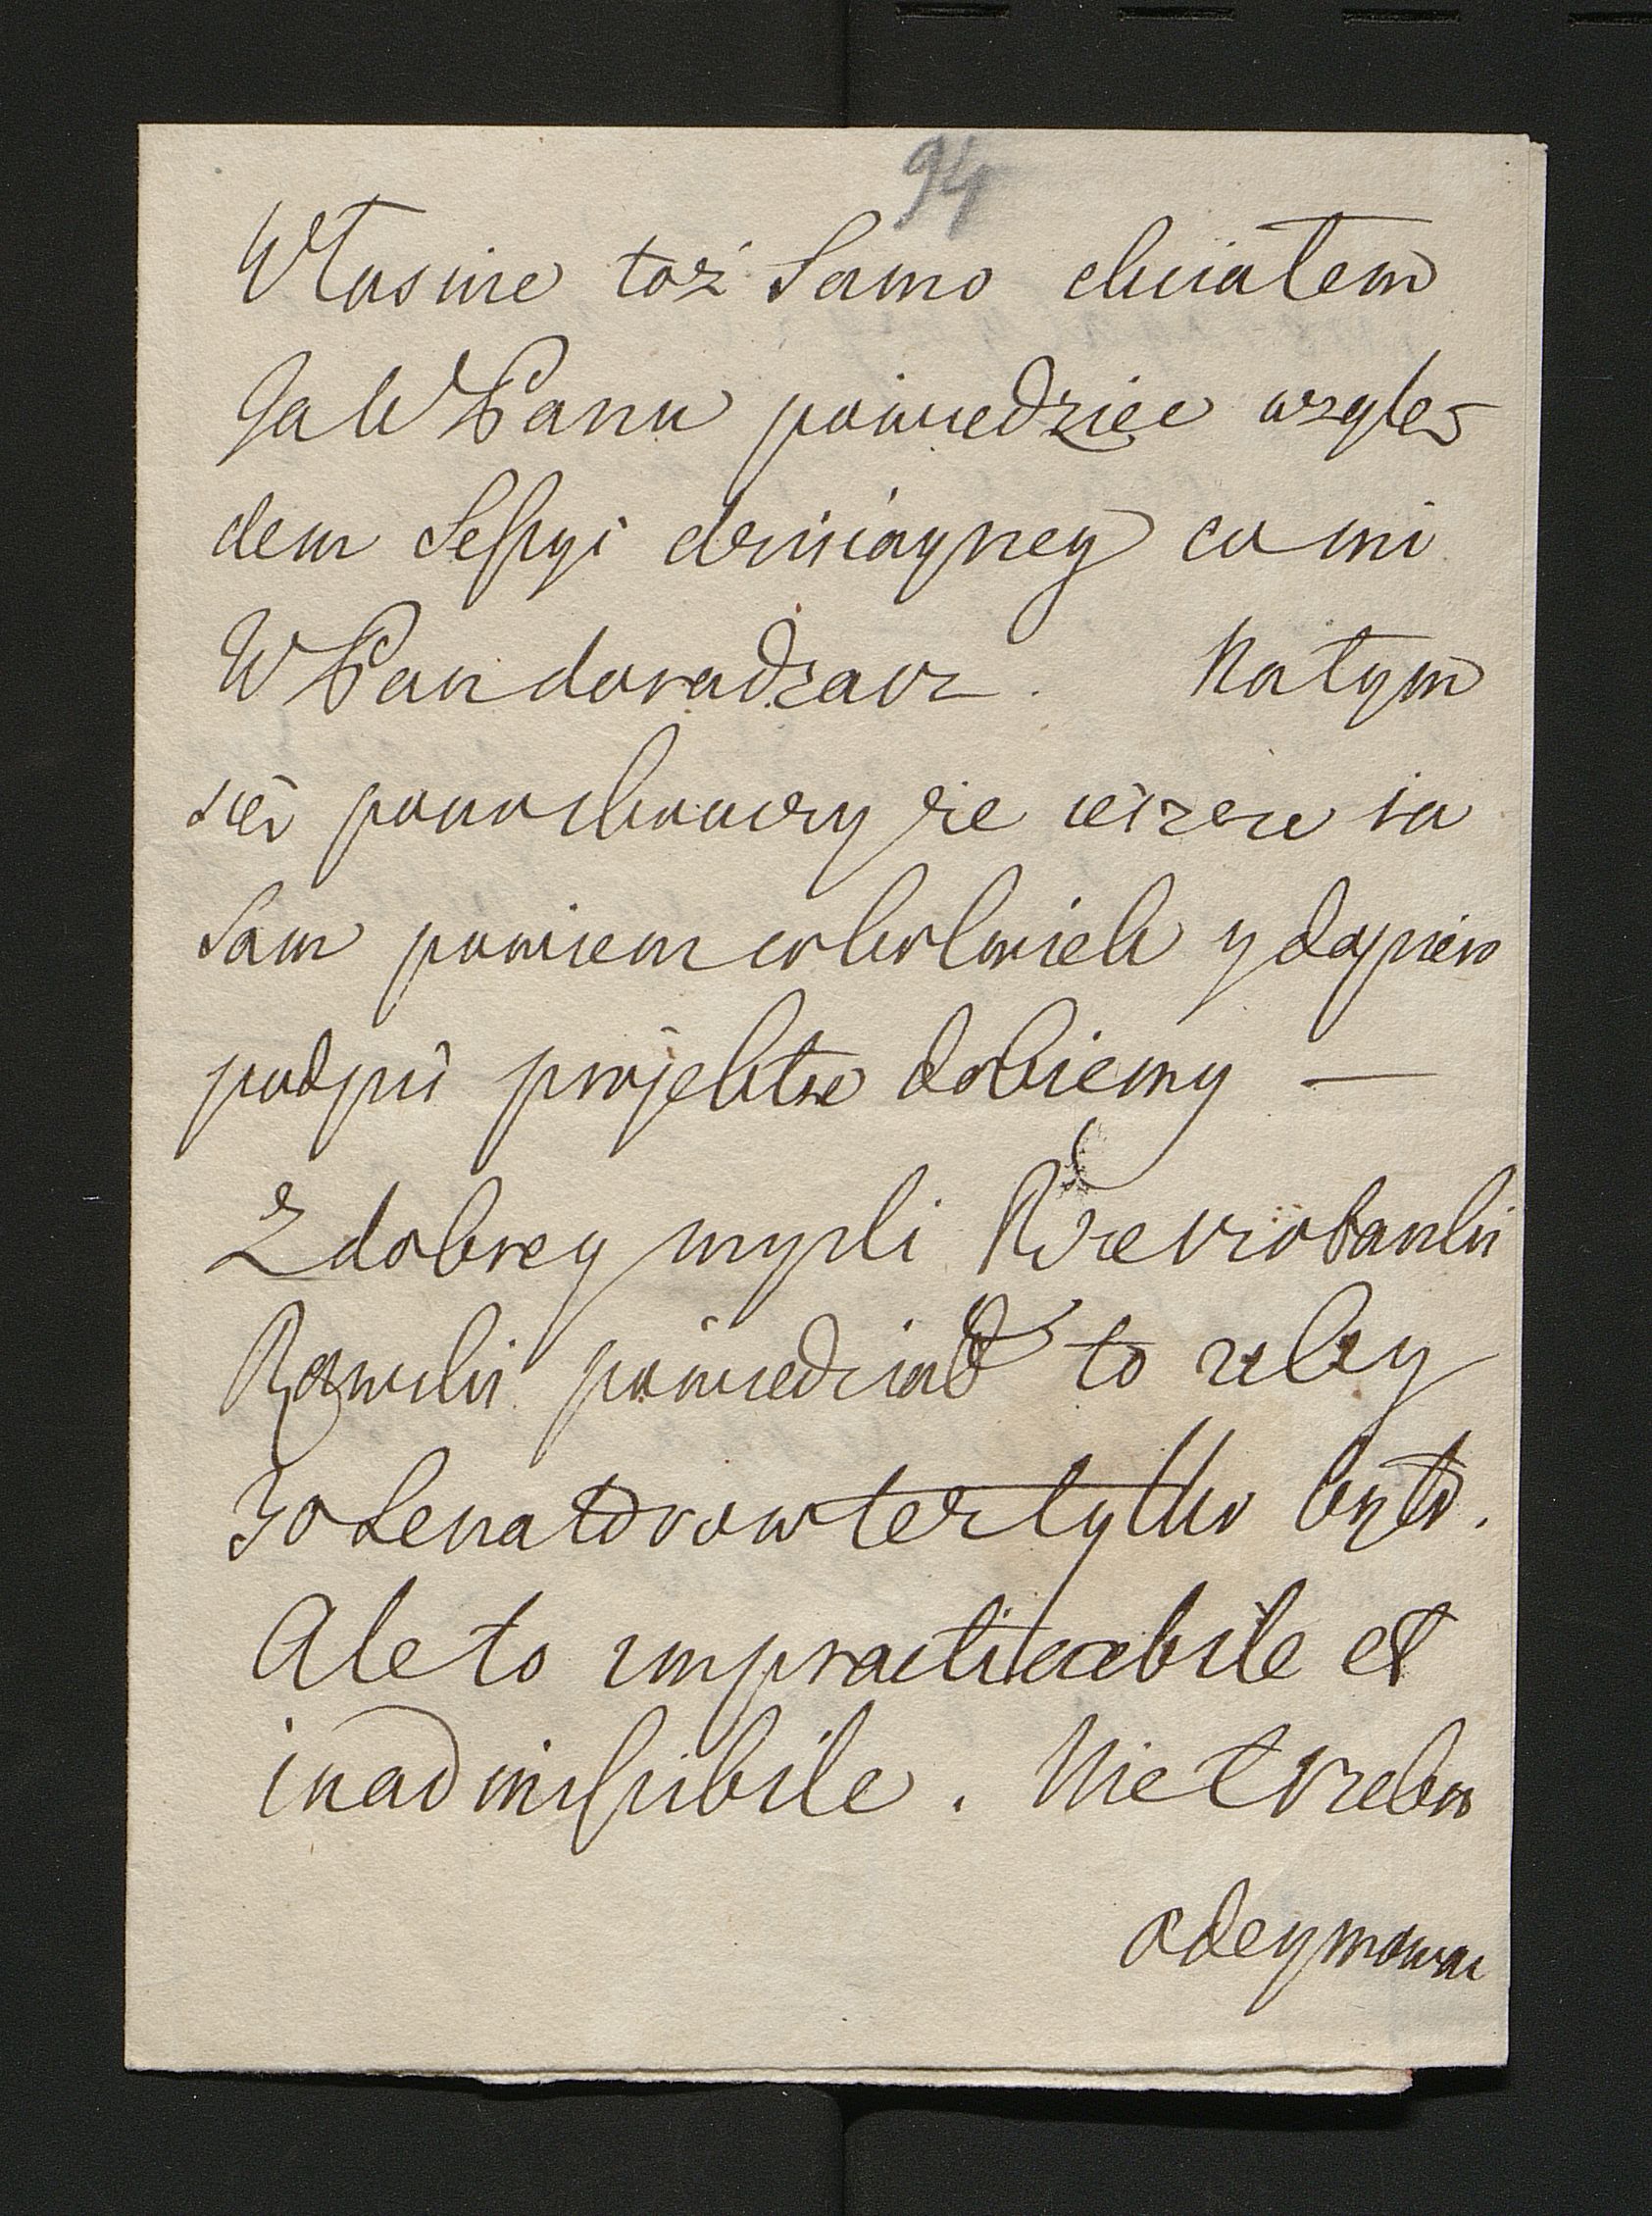 94
Własnie toż Samo chciałem
Ja WPanu powiedziec wzglę-
dem Sessyi dzisiayszey co mi
WPan doradzasz. Na tym
się
Sam powiem cokolwiek y dopiero
podpis projektu dobiemy —
Z dobrey mysli
powiedział to zeby
30 Senatorow też tylko było.
Ale to impracticabile et
inadmissibile. Nie trzeba
odeymowac